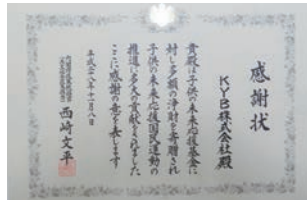 感謝状
KYB株式会社殿
貴殿は子供の未来応援基金に
対し多額の浄財を寄贈され
子供の未来応援国民運動の
推進に多大な貢献をされました
ここに感謝の意を表します
平成二八年十二月八日
西崎文平